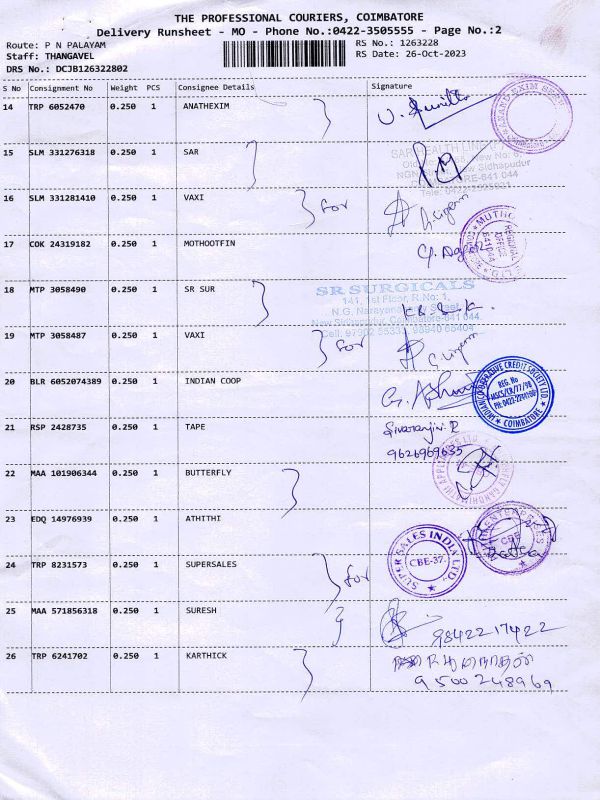 THE PROFESSIONAL COURIERS, COIMBATORE
Delivery Runsheet - MO - Phone No.:0422-3505555 - Page No.:2
Route: P N PALAYAM RS No.: 1263228
Staff: THANGAVEL RS Date: 26-Oct-2023
DRS No.: DCJB126322802
S No Consignment No Weight PCS Consignee Details Signature
14 TRP 6052470 0.250 1 ANATHEXIM
15 SLM 331276318 0.250 1 SAR
16 SLM 331281410 0.250 1 VAXI for
17 COK 24319182 0.250 1 MOTHOOTFIN
REGIONAL OFFICE 641044
18 MTP 3058490 0.250 1 SR SUR
SR SURGICALS
141, 1st Floor, R.No: 1,
N.G. Narayana Street
19 MTP 3058487 0.250 1 VAXI for
20 BLR 6052074389 0.250 1 INDIAN COOP
REG. No
MSCS/CR/77/98
PH: 0422-2244100
COIMBATORE
21 RSP 2428735 0.250 1 TAPE Sivaranjini R
9626969635
22 MAA 101906344 0.250 1 BUTTERFLY
23 EDQ 14976939 0.250 1 ATHITHI
ENTERPRISES
CBE
24 TRP 8231573 0.250 1 SUPERSALES for
SUPER SALES INDIA LTD.
CBE-37.
25 MAA 571856318 0.250 1 SURESH 9842217422
26 TRP 6241702 0.250 1 KARTHICK
9500248969